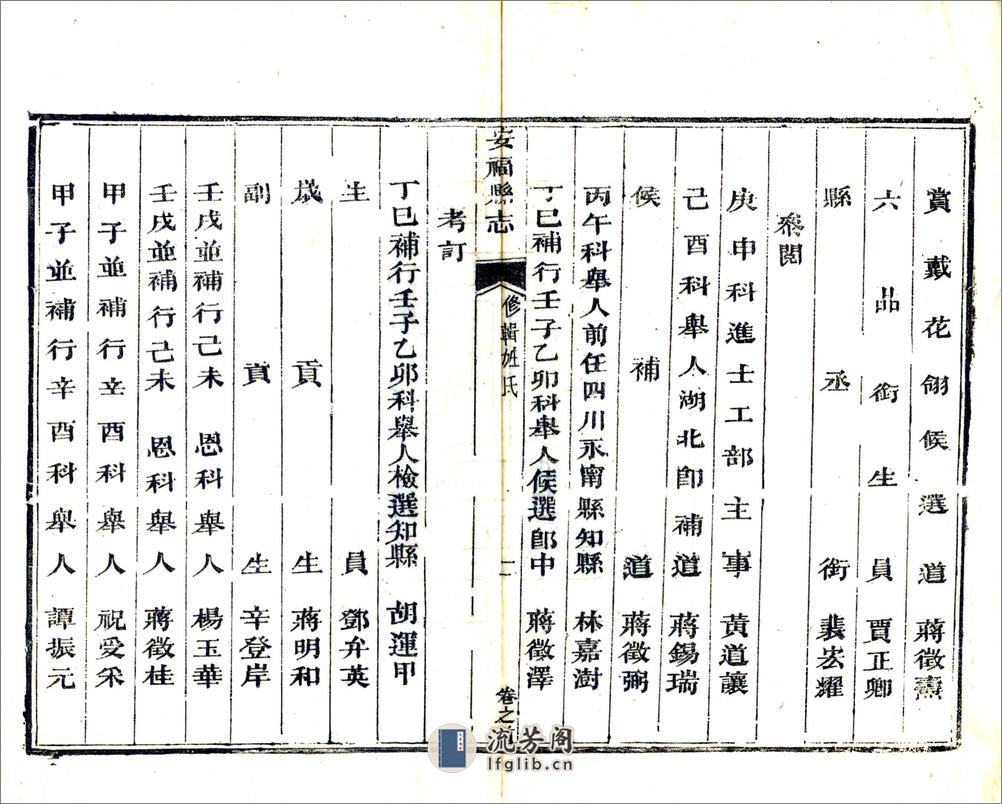 賞戴花翎候選道 蔣徵燾
六品銜生員 賈正卿
縣丞銜 裴宏耀
叅閱
庚申科進士工部主事 黃道讓
己酉科舉人湖北即補道 蔣錫瑞
候補道 蔣徵弼
丙午科舉人前任四川永甯縣知縣 林嘉澍
丁巳補行壬子乙卯科舉人候選郎中 蔣徵澤
安福縣志
修輯姓氏
二
卷之首
考訂
丁巳補行壬子乙卯科舉人檢選知縣 胡運甲
生員 鄧弁英
歲貢生 蔣明和
副貢生 辛登岸
壬戌並補行己未 恩科舉人 楊玉華
壬戌並補行己未 恩科舉人 蔣徵桂
甲子並補行辛酉科舉人 祝受采
甲子並補行辛酉科舉人 譚振元
流芳阁
lfglib.cn